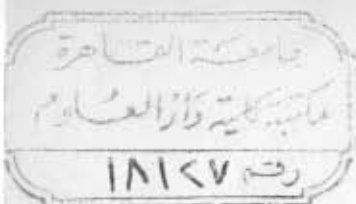 جامعة القاهرة
مكتبة كلية دار العلوم
رقم ١٨١٢٧